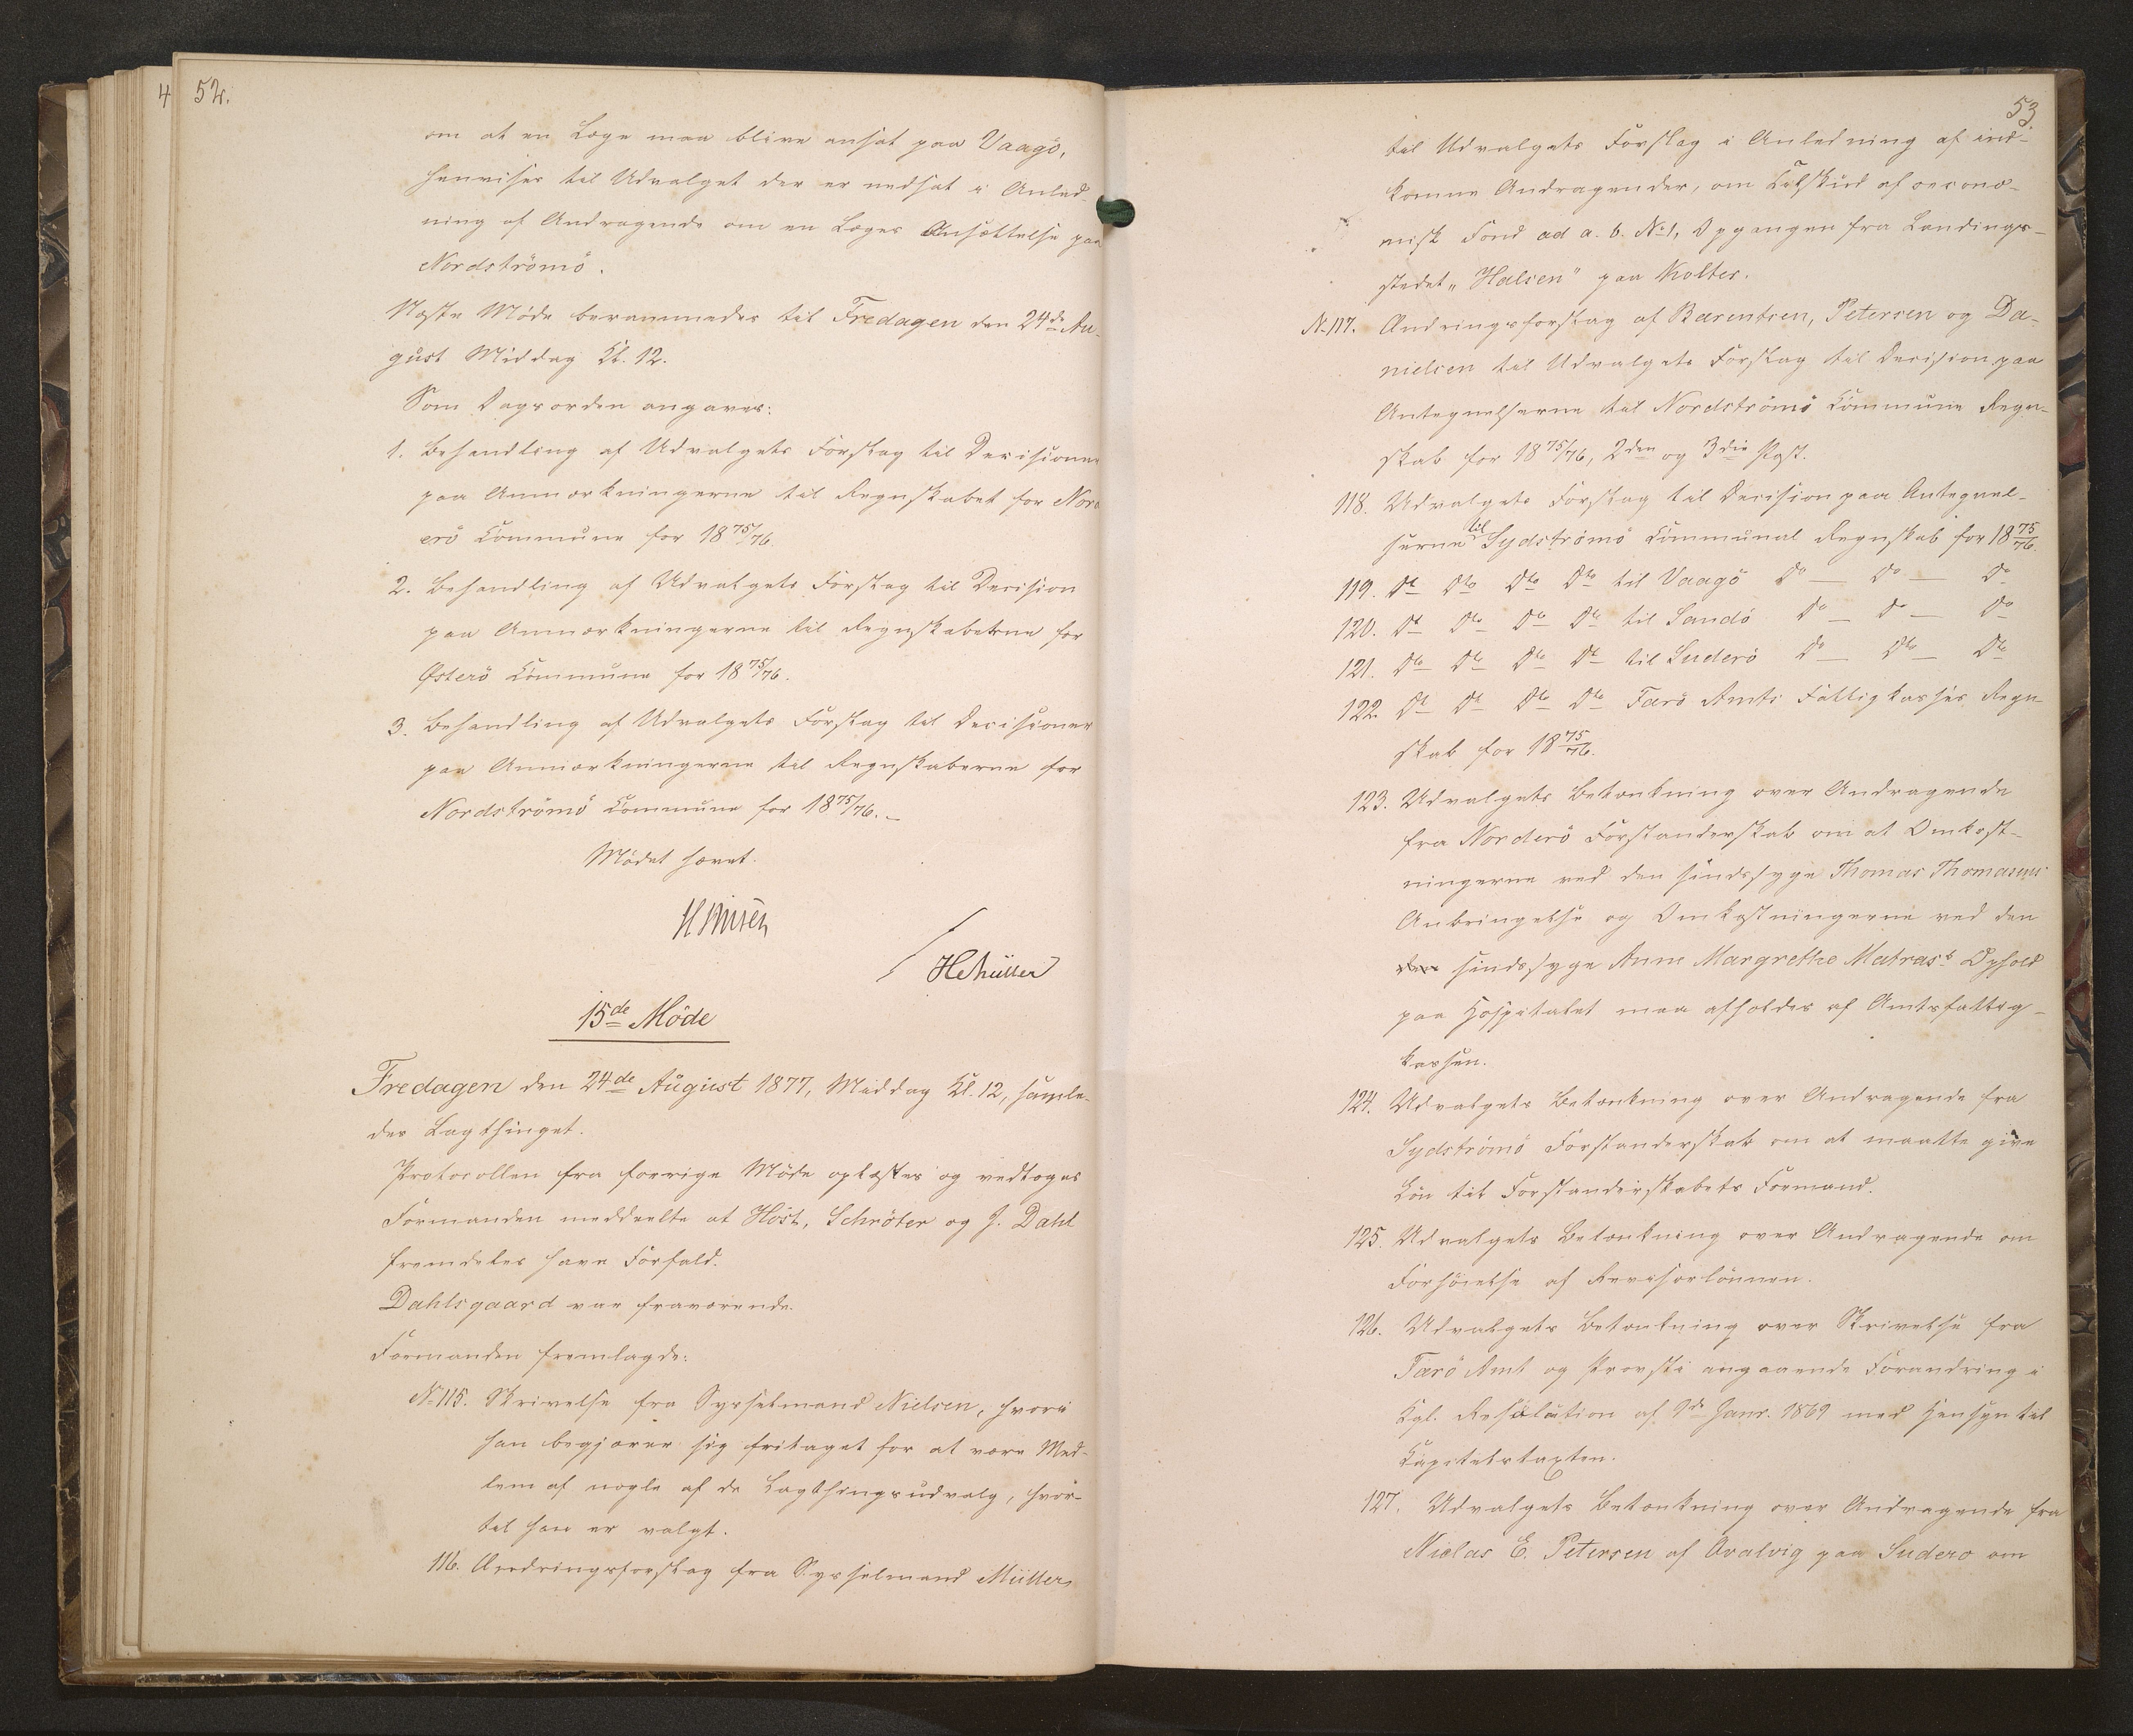 4 52.
om at en Læge maa blive ansat paa Vaagö,
henvises til Udvalget der er nedsat i Anled-
ning af Andragende om en Læges Ansættelse paa
Nordströmö.
Næste Möde berammedes til Fredagen den 24de Au-
gust Middag Kl. 12.
Som Dagsorden angaves:
1. Behandling af Udvalgets Forslag til Decisioner
paa Anmærkningerne til Regnskabet for Nord
erö Commune for 1875/76.
2. Behandling af Udvalgets Forslag til Decision
paa Anmærkningerne til Regnskaberne for
Österö Commune for 1875/76.
3. Behandling af Udvalgets Forslag til Decisioner
paa Anmærkningerne til Regnskaberne for
Nordströmö Commune for 1875/76.
Mödet hævet.
HMüller
15de Möde
Fredagen den 24de August 1877, Middag Kl. 12, samle-
des Lagthinget.
Protocollen fra forrige Möde oplæstes og vedtoges
Formanden meddeelte at Höst, Schröter og J. Dahl
fremdeles have Forfald.
Dahlsgaard var fraværende.
Formanden fremlagde:
No 115. Skrivelse fra Sysselmand Nielsen, hvori
han begjærer sig fritaget for at være Med-
lem af nogle af de Lagthingsudvalg, hvor-
til han er valgt.
116. Ændringsforslag fra Sysselmand Müller
53
til Udvalgets Forslag i Anledning af ind-
komne Andragender, om Tilskud af oecono-
misk Fond ad a. b. No 1, Opgangen fra Landings-
stedet "Halsen" paa Kolter.
No 117. Ændringsforslag af Bærentsen, Petersen og Da-
nielsen til Udvalgets Forslag til Decision paa
Antegnelserne til Nordströmö Commune Regn-
skab for 1875/76, 2den og 3die Post.
118. Udvalgets Forslag til Decision paa Antegnel-
serne til Sydströmö Communal Regnskab for 1875/76.
119. Do Do Do Do til Vaagö Do — Do — Do
120. Do Do Do Do til Sandö Do — Do — Do
121. Do Do Do Do til Suderö Do — Do — Do
122. Do Do Do Do Færö Amts Fattigkasses Regn-
skab for 1875/76.
123. Udvalgets Betænkning over Andragende
fra Norderö Forstanderskab om at Omkost-
ningerne ved den sindssyge Thomas Thomasens
Anbringelse og Omkostningerne ved den
den sindssyge Anne Margrethe Matrass Ophold
paa Hospitalet maa afholdes af Amtsfattig-
kassen.
124. Udvalgets Betænkning over Andragende fra
Sydströmö Forstanderskab om at maatte give
Lön til Forstanderskabets Formand.
125. Udvalgets Betænkning over Andragende om
Forhöielse af Revisorlönnen.
126. Udvalgets Betænkning over Skrivelse fra
Færö Amt og Provsti angaaende Forandring i
Kgl. Resolution af 9de Janr. 1869 med Hensyn til
Kapitelstaxten.
127. Udvalgets Betænkning over Andragende fra
Niclas E. Petersen af Qvalvig paa Suderö om